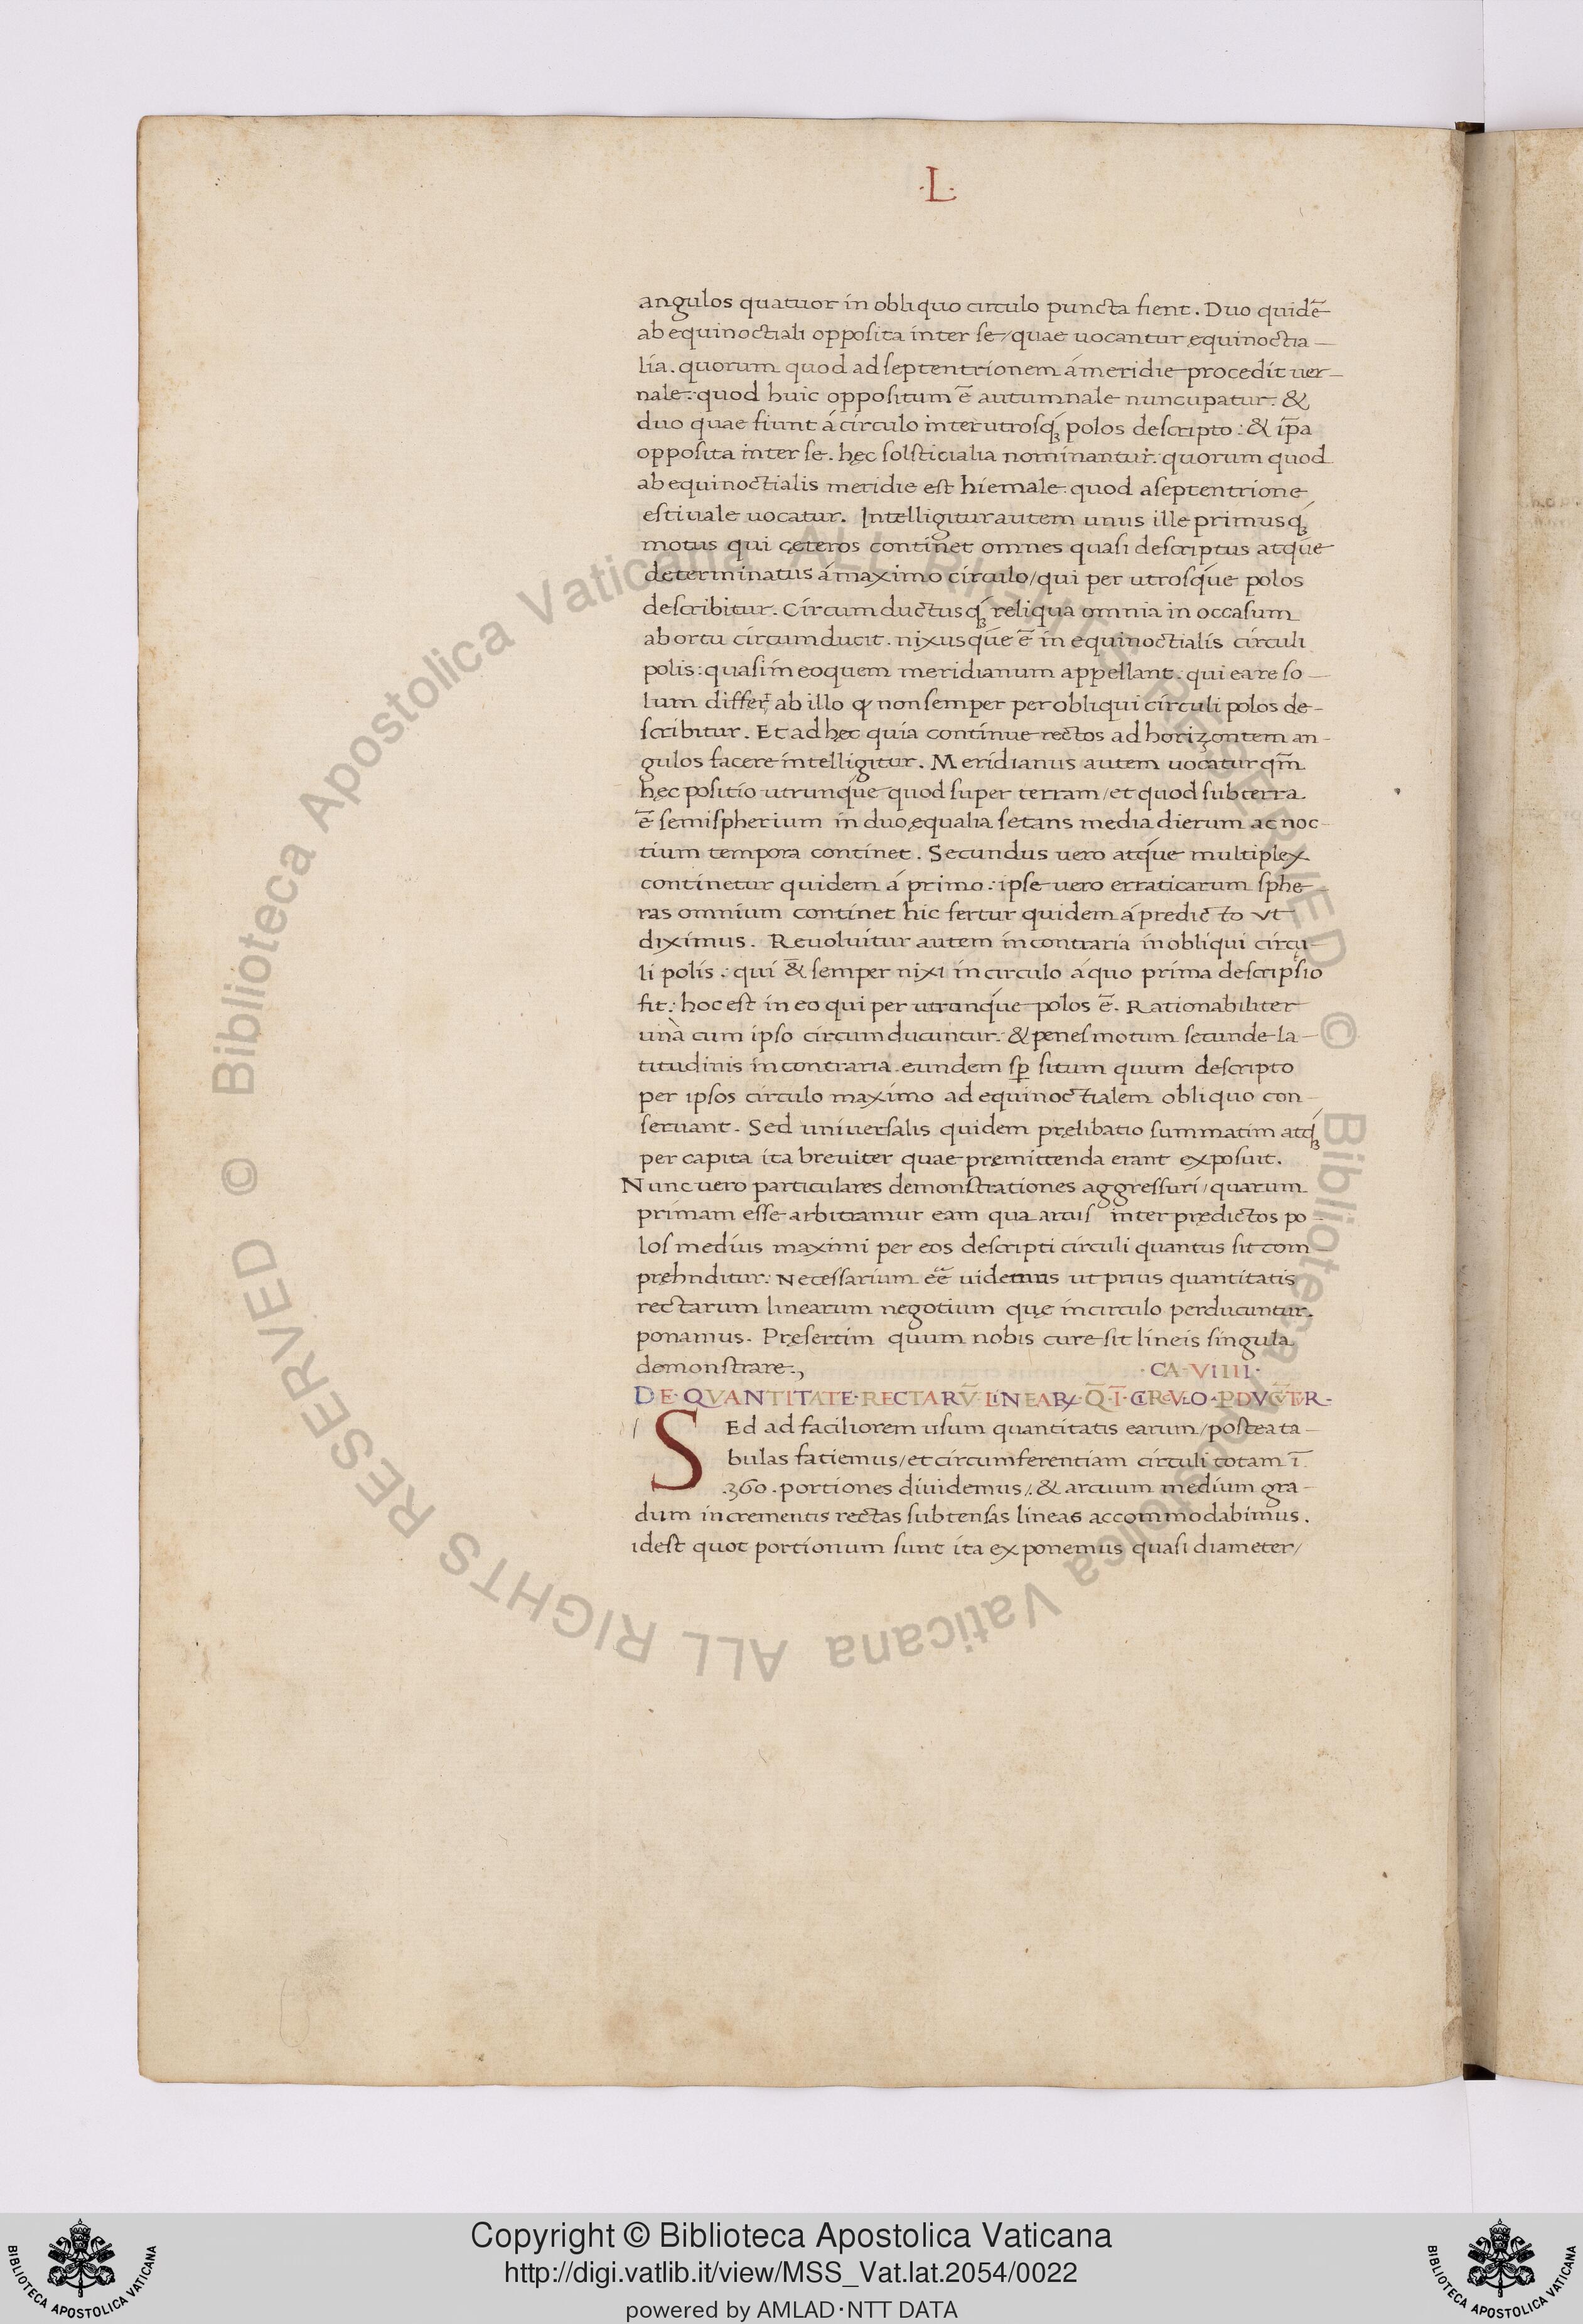 ·L·
angulos quatuor in obliquo circulo puncta fient. Duo quidē
ab equinoctiali opposita inter se/quae uocantur equinoctia-
lia. quorum quod ad septentrionem á meridie procedit uer-
nale: quod huic oppositum ē autumnale nuncupatur: &
duo quae fiunt á circulo inter utrosq́ꝫ polos descripto: & ip̄a
opposita inter se. hęc solsticialia nominantur: quorum quod
ab equinoctialis meridie est hiemale: quod a septentrione
estiuale uocatur. Intelligitur autem unus ille primusq́ꝫ
motus qui çeteros continet omnes quasi descriptus atq́ue
determinatus á maximo circulo/qui per utrosq́ue polos
describitur. Circumductusq́ꝫ reliqua omnia in occasum
ab ortu circumducit. nixusq́ue ē in equinoctialis circuli
polis: quasi in eo quem meridianum appellant: qui ea re so-
lum differt ab illo ꝙ non semper per obliqui circuli polos de-
scribitur. Et ad hęc quia continue rectos ad horizontem an-
gulos facere intelligitur. Meridianus autem uocatur qm̄
hęc positio utrunq́ue quod super terram/et quod sub terra
ē semispherium in duo ęqualia secans media dierum ac noc-
tium tempora continet. Secundus uero atq́ue multiplex
continetur quidem á primo: ipse uero erraticarum sphe-
ras omnium continet hic fertur quidem á predicto vt
diximus. Reuoluitur autem in contraria in obliqui circu-
li polis: qui & semper nixi in circulo á quo prima descripsio
fit: hoc est in eo qui per utrunq́ue polos ē. Rationabiliter
unà cum ipso circumducuntur: & penes motum secunde la-
titudinis in contraria eundem sp̄ situm quum descripto
per ipsos circulo maximo ad equinoctialem obliquo con-
seruant. Sed uniuersalis quidem pręlibatio summatim atq́ꝫ
per capita ita breuiter quae pręmittenda erant exposuit.
Nunc uero particulares demonstrationes aggressuri/quarum
primam esse arbitramur eam qua arcus inter prędictos po-
los medius maximi per eos descripti circuli quantus sit com
pręhnditur: Necessarium eē̄ uidemus ut prius quantitatis
rectarum linearum negotium quę in circulo perducuntur.
ponamus. Pręsertim quum nobis cure sit lineis singula
demonstrare.,
·CA·VIIII·
DE·QVANTITATE·RECTARV̄·LINEARꝜ·Q̄·Ī·CIRCVLO·PDVCV̄TVR·
SEd ad faciliorem usum quantitatis earum/postea ta-
bulas faciemus/et circumferentiam circuli totam ī
.360. portiones diuidemus/. & arcuum medium gra-
dum incrementis rectas subtensas lineas accommodabimus.
idest quot portionum sunt ita exponemus quasi diameter/
© Biblioteca Apostolica Vaticana ALL RIGHTS RESERVED © Biblioteca Apostolica Vaticana ALL RIGHTS RESERVED
Copyright © Biblioteca Apostolica Vaticana
http://digi.vatlib.it/view/MSS_Vat.lat.2054/0022
powered by AMLAD·NTT DATA
BIBLIOTECA APOSTOLICA VATICANA
BIBLIOTECA APOSTOLICA VATICANA